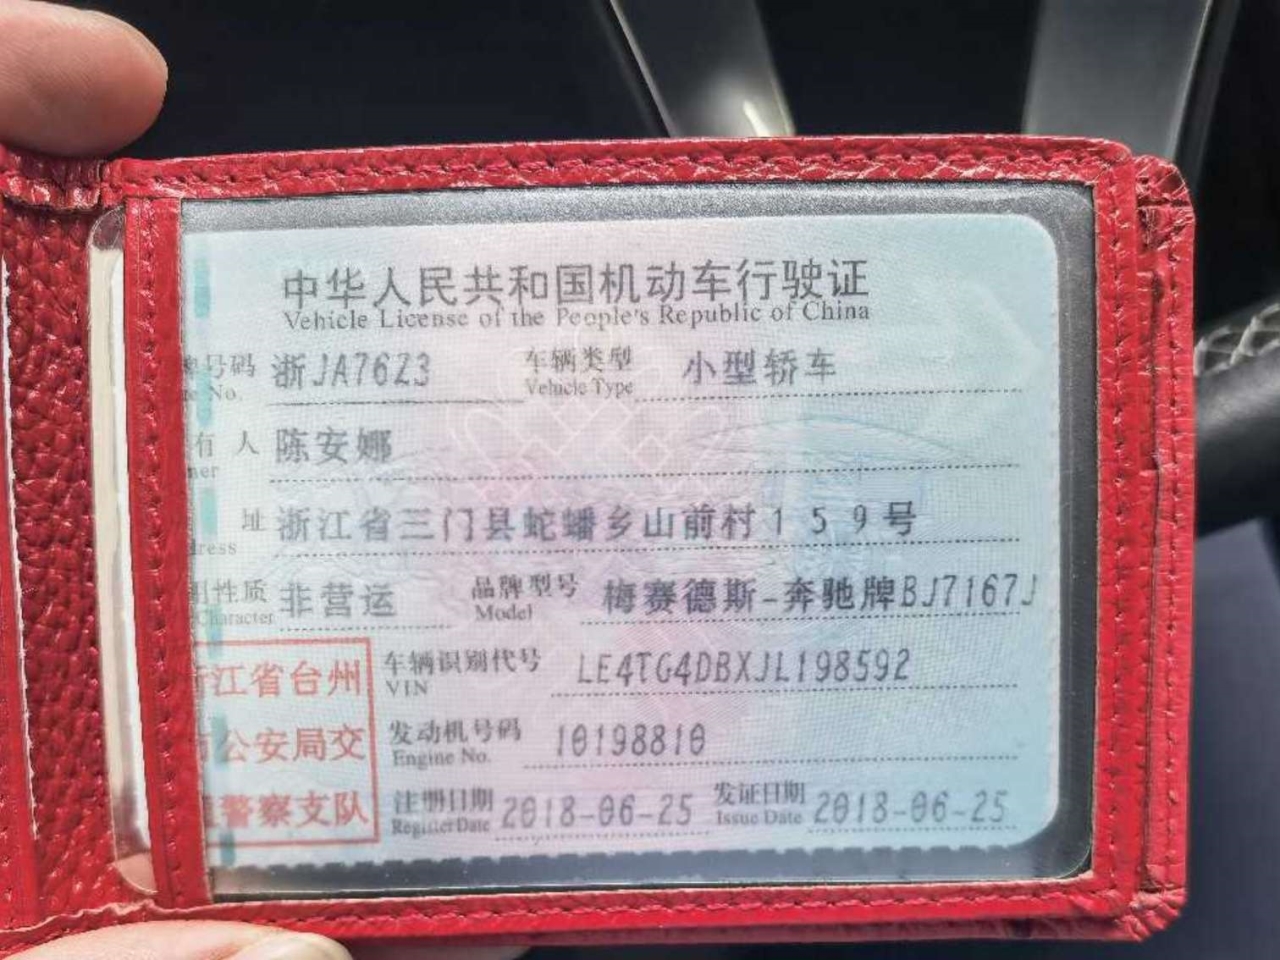 中华人民共和国机动车行驶证
Vehicle License of the People's Republic of China
号码 浙JA76Z3 车辆类型 小型轿车
No. Vehicle Type
有人 陈安娜
址 浙江省三门县蛇蟠乡山前村159号
性质 非营运 品牌型号 梅赛德斯-奔驰牌BJ7167J
Character Model
江省台州 车辆识别代号 LE4TG4DBXJL198592
VIN
公安局交 发动机号码 10198810
Engine No.
警察支队 注册日期 2018-06-25 发证日期 2018-06-25
Register Date Issue Date